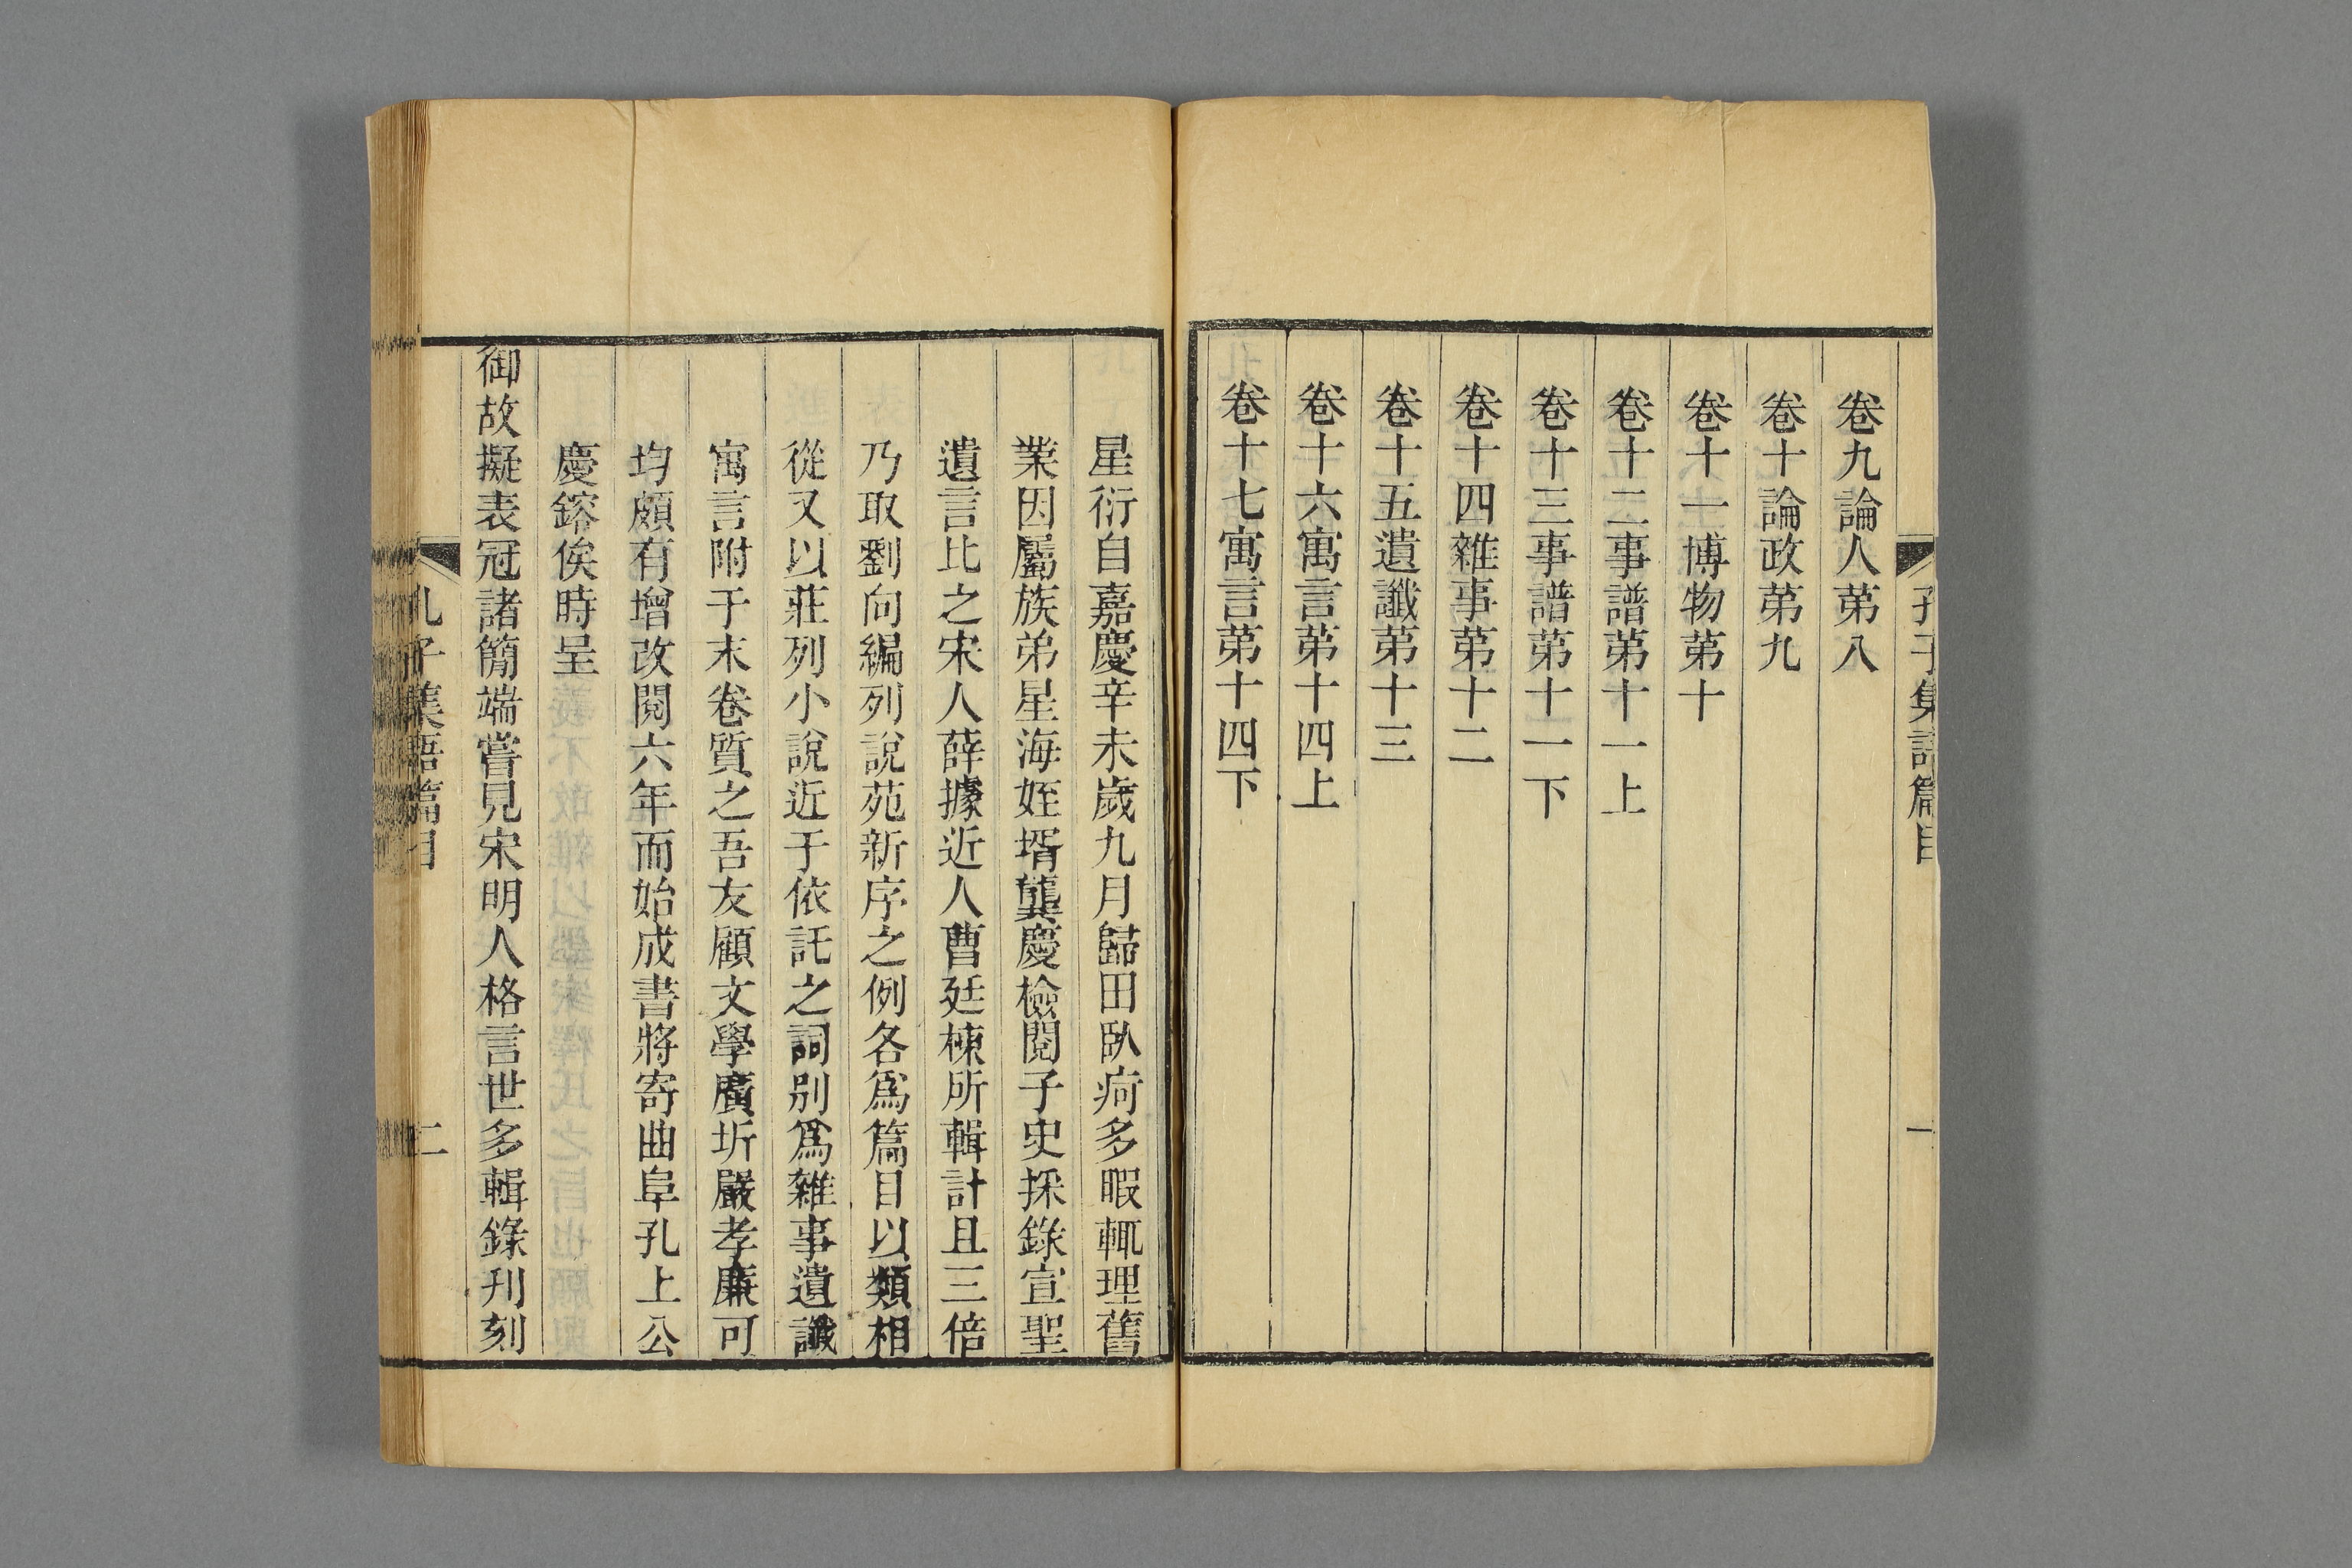 孔子集語篇目
一
卷九論人第八
卷十論政第九
卷十一博物第十
卷十二事譜第十一上
卷十三事譜第十一下
卷十四雜事第十二
卷十五遺讖第十三
卷十六寓言第十四上
卷十七寓言第十四下
星衍自嘉慶辛未歲九月歸田臥疴多暇輒理舊
業因屬族弟星海姪壻龔慶檢閱子史採錄宣聖
遺言比之宋人薛據近人曹廷棟所輯計且三倍
乃取劉向編列說苑新序之例各爲篇目以類相
從又以莊列小說近于依託之詞別爲雜事遺讖
寓言附于末卷質之吾友顧文學廣圻嚴孝廉可
均頗有增改閱六年而始成書將寄曲阜孔上公
慶鎔俟時呈
御故擬表冠諸簡端嘗見宋明人格言世多輯錄刋刻
孔子集語篇目
二